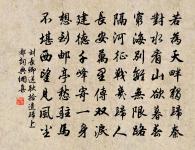 若為天畔獨歸秦
對水看山欲暮春
窮海別離無限路
隔河征戰幾歸人
長安萬里傳雙淚
建德千峰寄一身
想到郵亭愁駐馬
不堪西望見風塵
劉長卿送耿拾遺歸上
都詞典網集